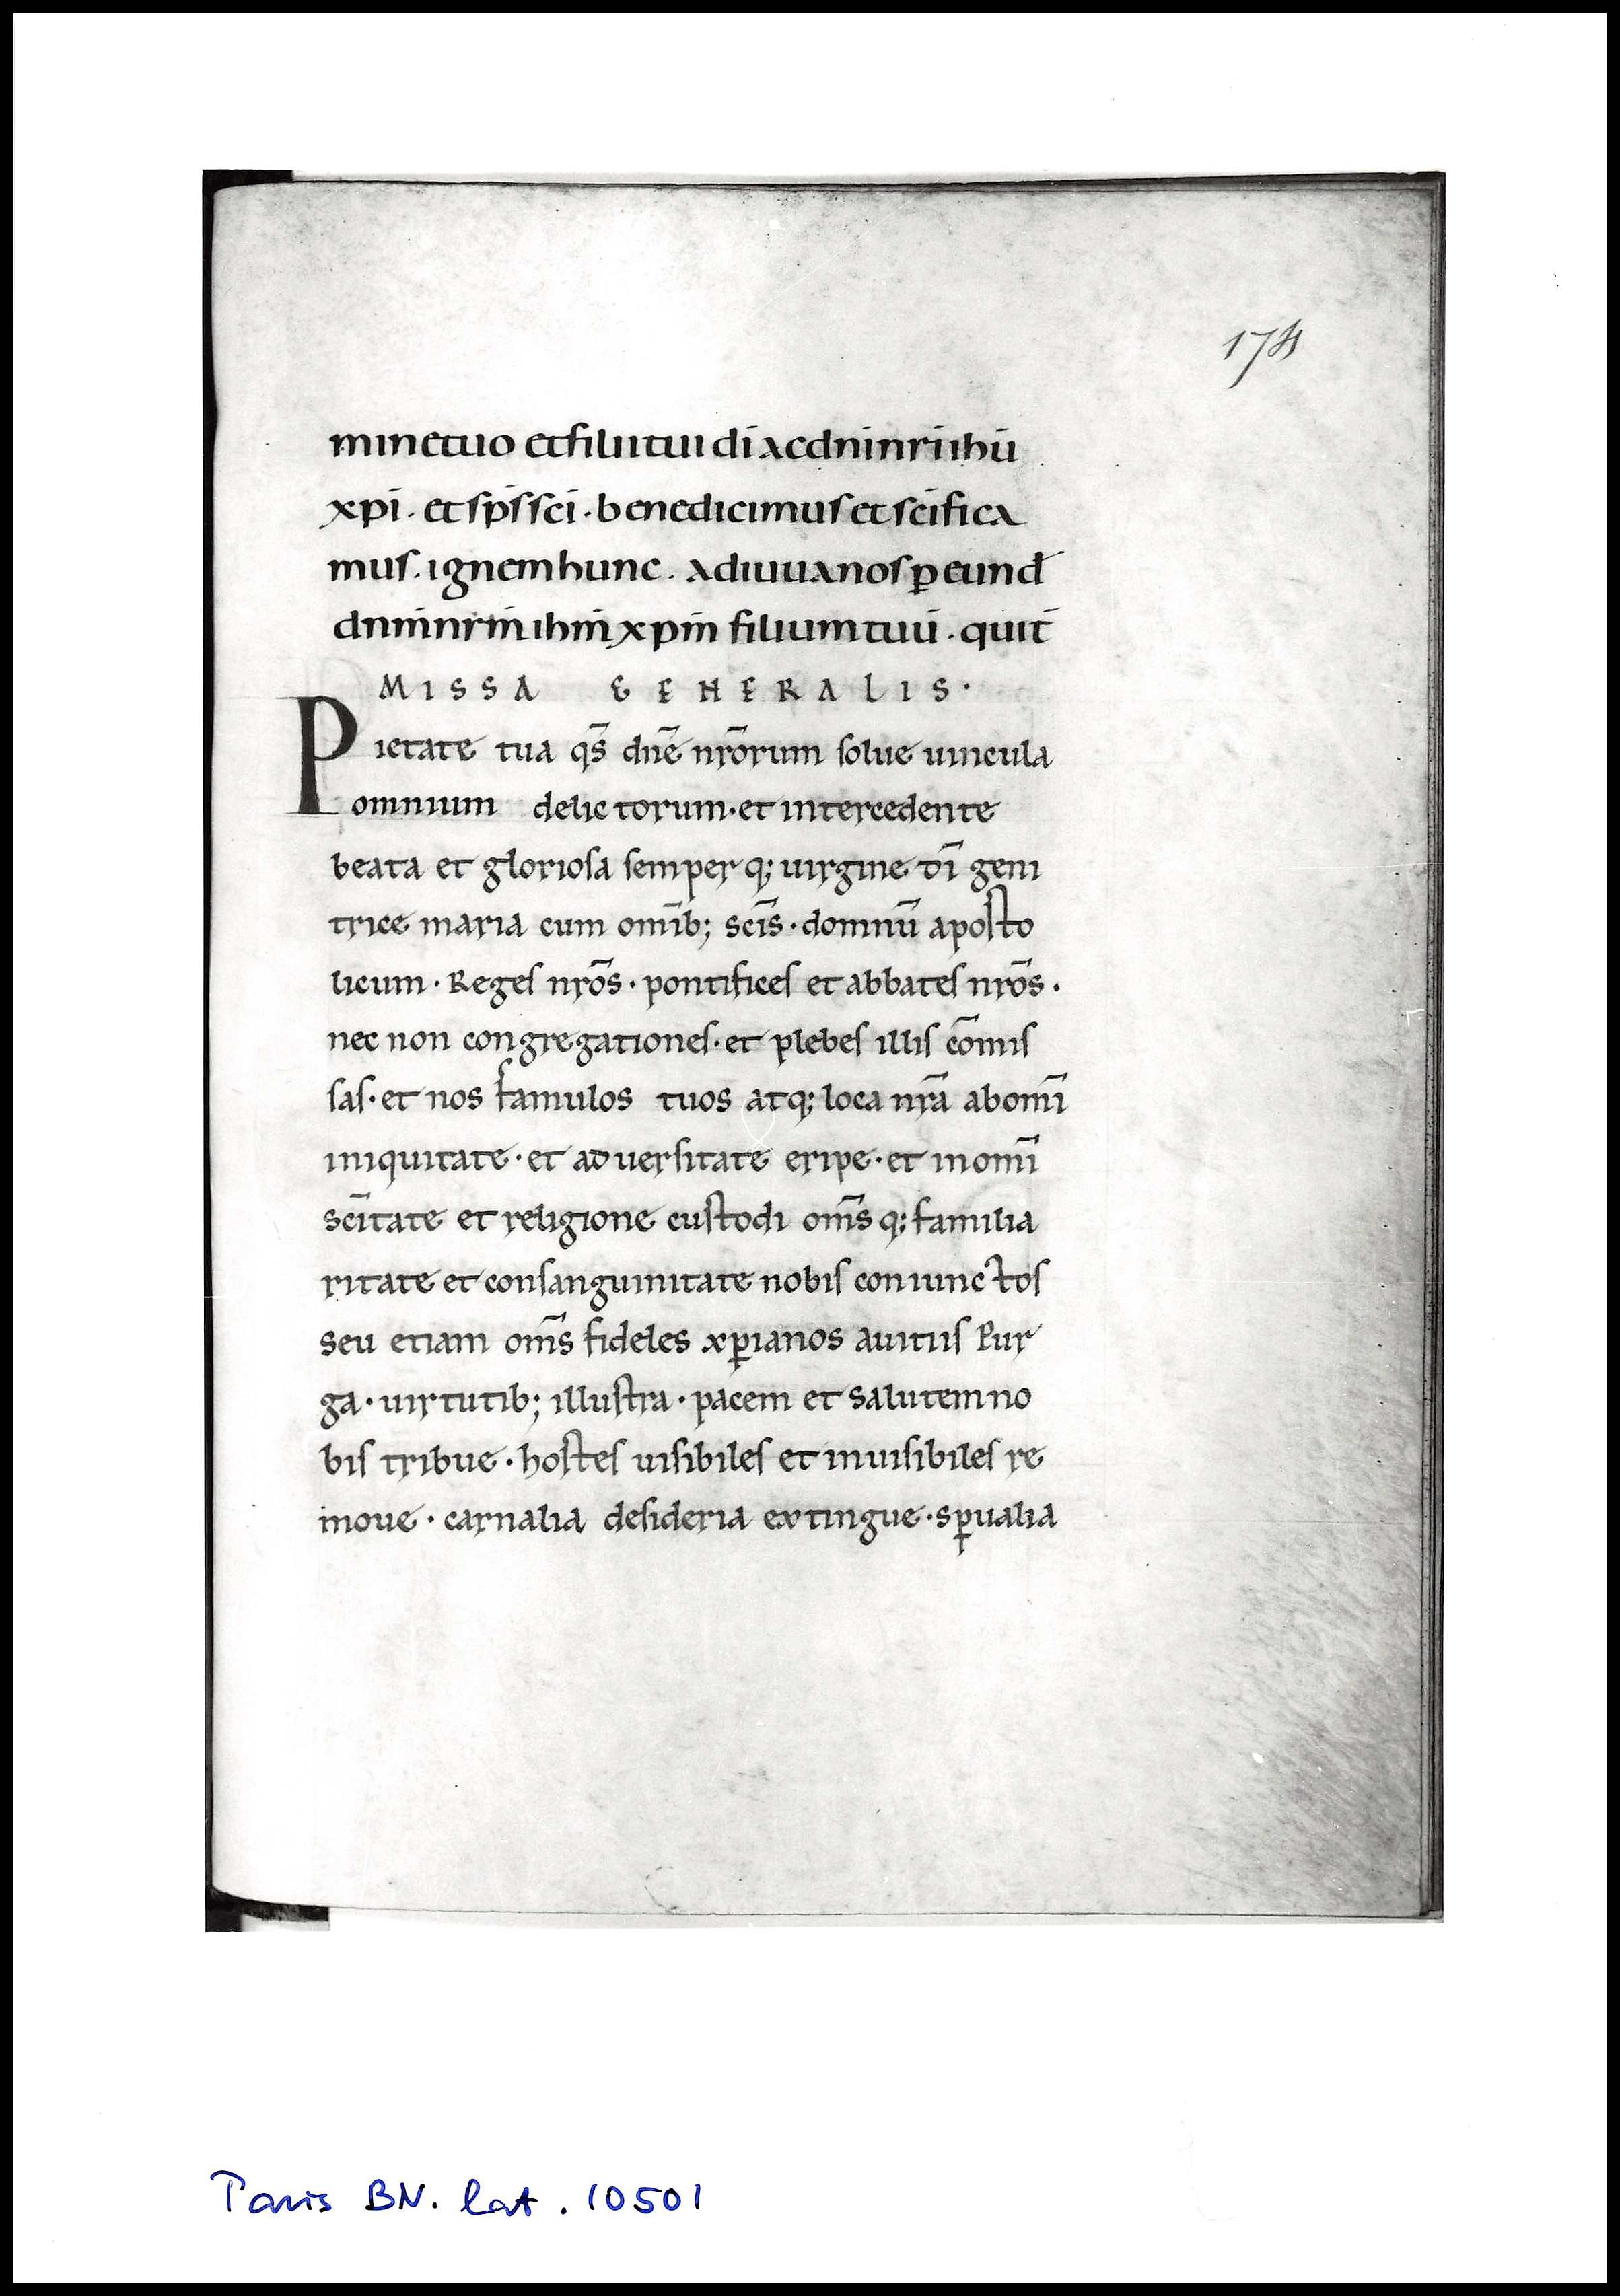 174
mine tuo et filii tui di ac dni nri ihu
xpi · et sps sci · benedicimus et scifica
mus · ignem hunc · adiuua nos p eund
dnm nrm ihm xpm filium tuū · qui t
MISSA GENERALIS ·
Pietate tua qs̄ dnē nrōrum solue uincula
omnium delictorum · et intercedente
beata et gloriosa semper q; uirgine dī geni
trice maria cum omīb; scīs · domnū aposto
licum · Reges nrōs · pontifices et abbates nrōs ·
nec non congregationes · et plebes illis cōmis
sas · et nos famulos tuos atq; loca nrā ab omī
iniquitate · et aduersitate eripe · et in omī
scītate et religione custodi omīs q; familia
ritate et consanguinitate nobis coniunctos
seu etiam omīs fideles xp̄ianos a uitiis Pur
ga · uirtutib; illustra · pacem et salutem no
bis tribue · hostes uisibiles et inuisibiles re
moue · carnalia desideria extingue · sp̄ualia
Paris BN. lat. 10501